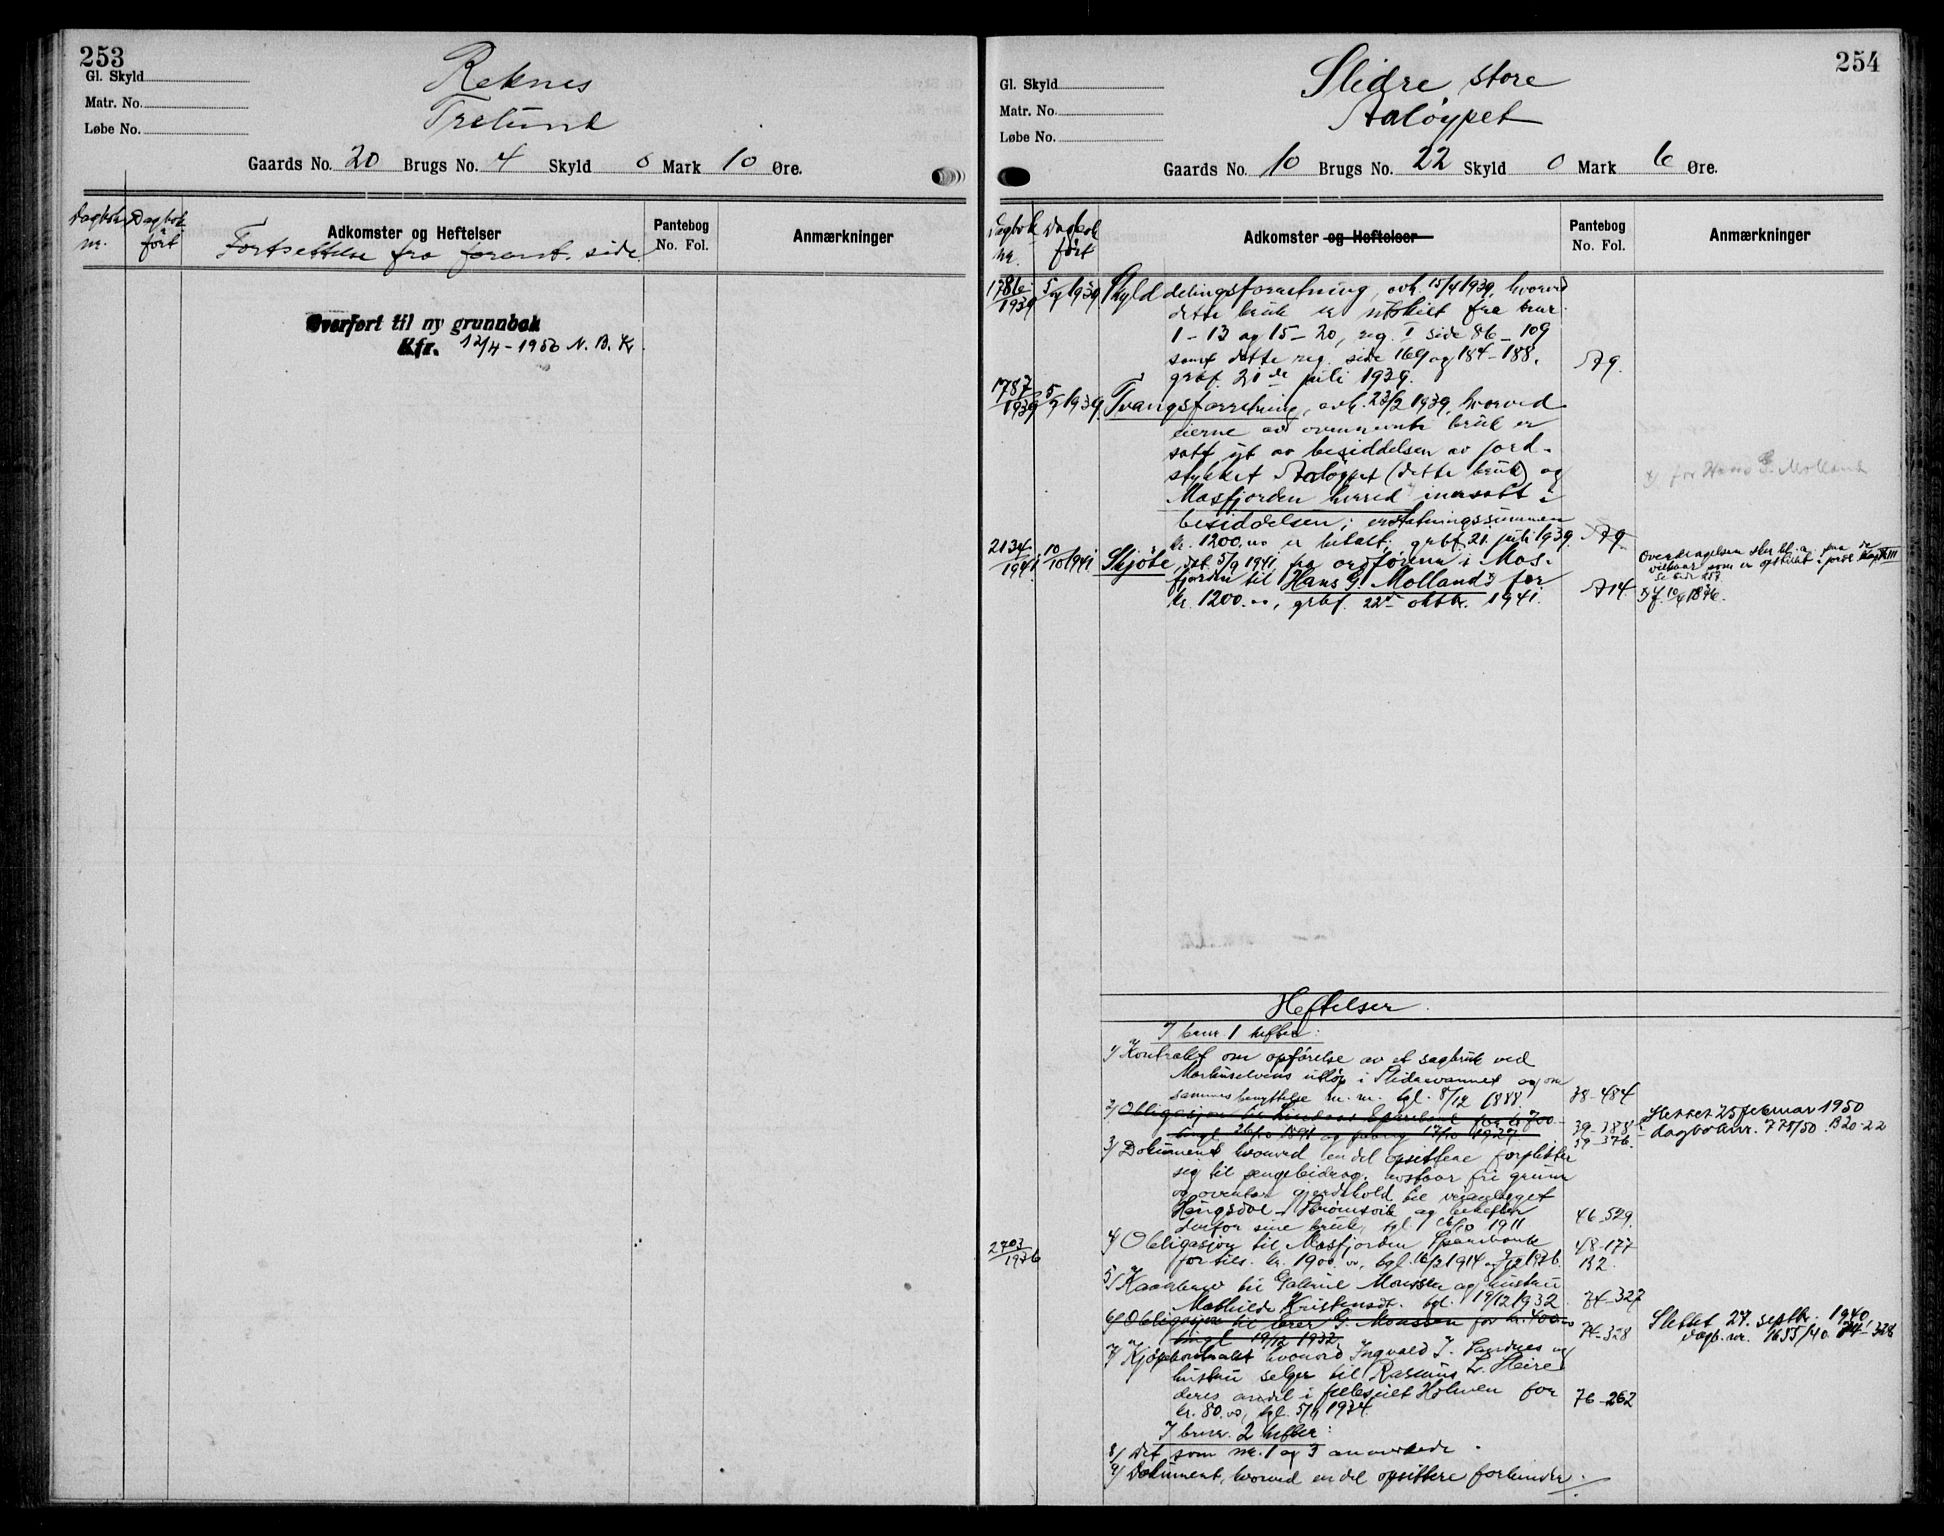 253
Gl. Skyld
Matr. No.
Løbe No.
Reknes
Gaards No. 20 Brugs No. 4 Skyld 0 Mark 10 Øre.
Dagbok nr.
Dagbok ført
Adkomster og Heftelser
Fortsettelse fra forest. side
Pantebog
No. Fol.
Anmærkninger
Overført til ny grunnbok
Kfr. 12/4-1956 N. B. Kr
254
Gl. Skyld
Matr. No.
Løbe No.
Slidre store
Aaløypet
Gaards No. 10 Brugs No. 22 Skyld 0 Mark 6 Øre.
Dagbok nr.
Dagbok ført
Adkomster og Heftelser
Pantebog
No. Fol.
Anmærkninger
1786/1939 5/7 1939 Skylddelingsforretning, avh. 15/4 1939, hvorved
dette bruk er utskilt fra bnr.
1-13 og 15-20, reg. I side 86-109
samt dette reg. side 169 og 184-188.
grbf. 21de juli 1939. A9.
1787/1939 5/7 1939 Tvangsforretning, avh. 23/2 1939, hvorved
eierne av ovennevnte bruk er
satt ut av besiddelsen av jord-
stykket Aaløypet (dette bruk) og
Masfjorden herred innsatt i
besiddelsen; erstatningssummen
kr. 1200.00 er betalt; grbf. 21. juli 1939. A9
x) for Hans G. Molland
2134/1941 10/10 1941 Skjøte, dat. 5/9 1941, fra ordføreren i Mas-
fjorden til Hans G. Molland x) for
kr. 1200.00, grbf. 22de oktbr. 1941. A14
Heftelser
I bnr. 1 hefter:
1/ Kontrakt om opførelse av et sagbruk ved
utløp i Slidrevannet og om
sammes benyttelse m. m. tgl. 8/12 1888. 38-484
2/ Obligasjon til Lindaas Sparebank for kr 700
39-388
59-376
Slettet 25 februar 1950
dagboknr. 775/50 B20-22
3/ Dokument hvorved en del opsittere forplikter
sig til pengebidrag, avstaar fri grunn
og overtar gjerdehold til veianlegget
og behefter
derfor sine bruk, tgl. 1911 46-529.
2703/1936 4/ Obligasjon til Masfjorden Sparebank
for tils. kr. 1900.00, tgl. 16/2 1914 og 9/12 1936. 48-177
B2.
5/ Kaarbrev til Gabriel Monssen og hustru
Mathilde Kristensdt. tgl. 19/12 1932. 74-327
6/ Obligasjon til lærer G. Monssen for kr. 400.00
tingl. 19/12 1932. 74-328
Slettet 27. septbr. 1940
dagb. nr. 1655/40. 74-328
7/ Kjøpekontrakt hvorved Ingvald J. Sandnes og
hustru selger til Rasmus L. Sleire
deres andel i fellesseiet Holmen for
kr. 80.00, tgl. 5/4 1934. 76-262
I bnr. 2 hefter:
8/ Det som nr. 1 og 3 anmerkede.
9/ Dokument, hvorved en del opsittere forbinder